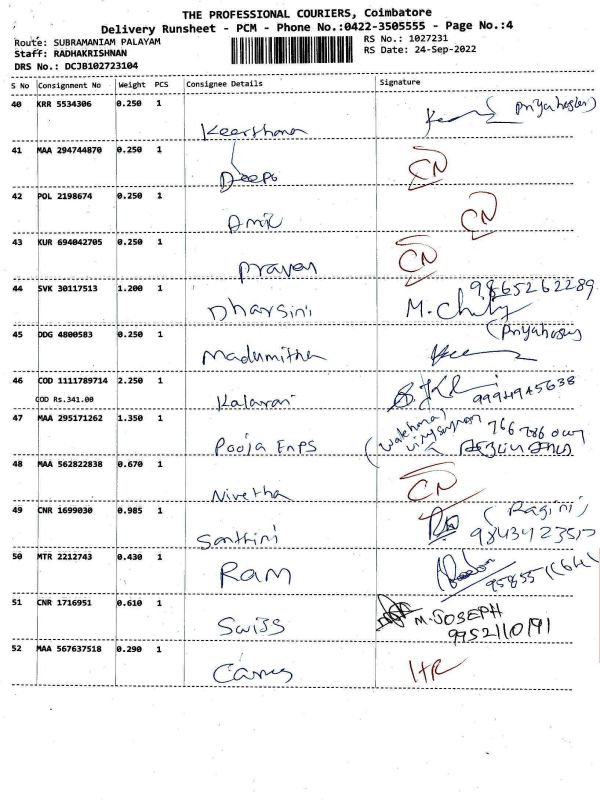 THE PROFESSIONAL COURIERS, Coimbatore
Delivery Runsheet - PCM - Phone No.:0422-3505555 - Page No.:4
Route: SUBRAMANIAM PALAYAM
RS No.: 1027231
Staff: RADHAKRISHNAN
RS Date: 24-Sep-2022
DRS No.: DCJB102723104
S No Consignment No Weight PCS Consignee Details Signature
40 KRR 5534306 0.250 1
Keerthana
41 MAA 294744870 0.250 1
Deepa CN
42 POL 2198674 0.250 1
CN
43 KUR 694042705 0.250 1
Praven CN
44 SVK 30117513 1.200 1
9865262289
Dharsini M.
45 DDG 4800583 0.250 1
Madumitha
46 COD 1111789714 2.250 1
COD Rs.341.00
Kalavani
47 MAA 295171262 1.350 1
Pooja EnPS
48 MAA 562822838 0.670 1
Nivetha CN
49 CNR 1699030 0.985 1
(Ragini)
Santhini
50 MTR 2212743 0.430 1
Ram
51 CNR 1716951 0.610 1
M.JOSEPH
Swiss
52 MAA 567637518 0.290 1